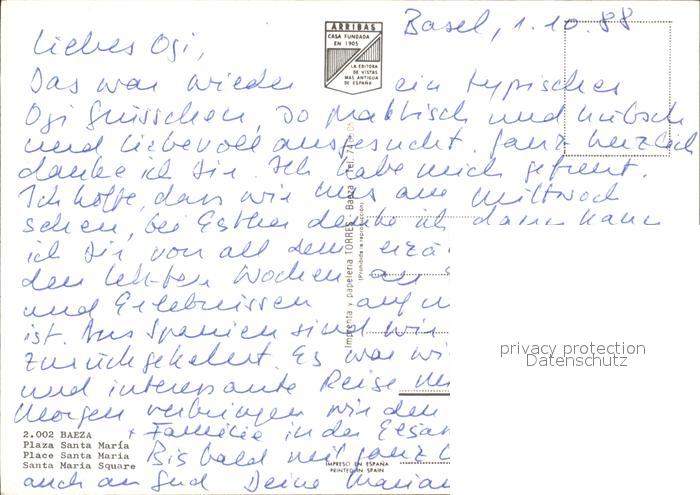 Basel, 1.10.88
ARRIBAS
CASA FUNDADA
EN 1905
LA EDITORA
DE VISTAS
MAS ANTIGUA
DE ESPAÑA
Liebes Ogi,
Das war wieder ein typisches
Ogi Grüsschen, so praktisch und hübsch
und liebevoll ausgesucht. Ganz herzlich
danke ich Dir. Ich habe mich gefreut.
Ich hoffe, dass wir uns am Mittwoch
sehen, bei Esther denke ich dann kann
ich Dir von all dem erzä
den letzten Wochen an
und Erlebnissen
ist. Aus Spanien sind wir
zurückgekehrt. Es war wi
und interessante Reise
Morgen verbringen wir den
+ Familie in der
Bis bald mit ganz
auch an Deine Marian
Imprenta y papelería TORRES Baeza Tel. 74
(Prohibida la reproducción)
2.002 BAEZA
Plaza Santa María
Place Santa Maria
Santa Maria Square
IMPRESO EN ESPAÑA
PRINTED IN SPAIN
privacy protection
Datenschutz